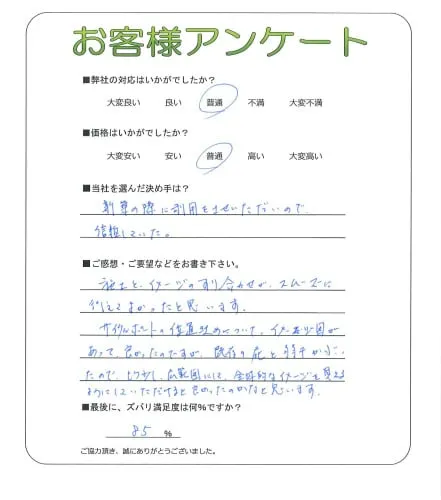 お客様アンケート
■弊社の対応はいかがでしたか?
大変良い 良い 普通 不満 大変不満
■価格はいかがでしたか?
大変安い 安い 普通 高い 大変高い
■当社を選んだ決め手は?
新築の際に利用をさせいただいので、
信頼していた。
■ご感想・ご要望などをお書き下さい。
施主と、イメージのすり合わせが、スムーズに
行えてよかったと思います。
サイクルポートの位置 について、イメージ図が
あって、良かったのですが、既存の と
たので、もう少し、広範囲にして、全体的なイメージを見える
ようにしていただけると良かったのかなと思います。
■最後に、ズバリ満足度は何%ですか?
85 %
ご協力頂き、誠にありがとうございました。